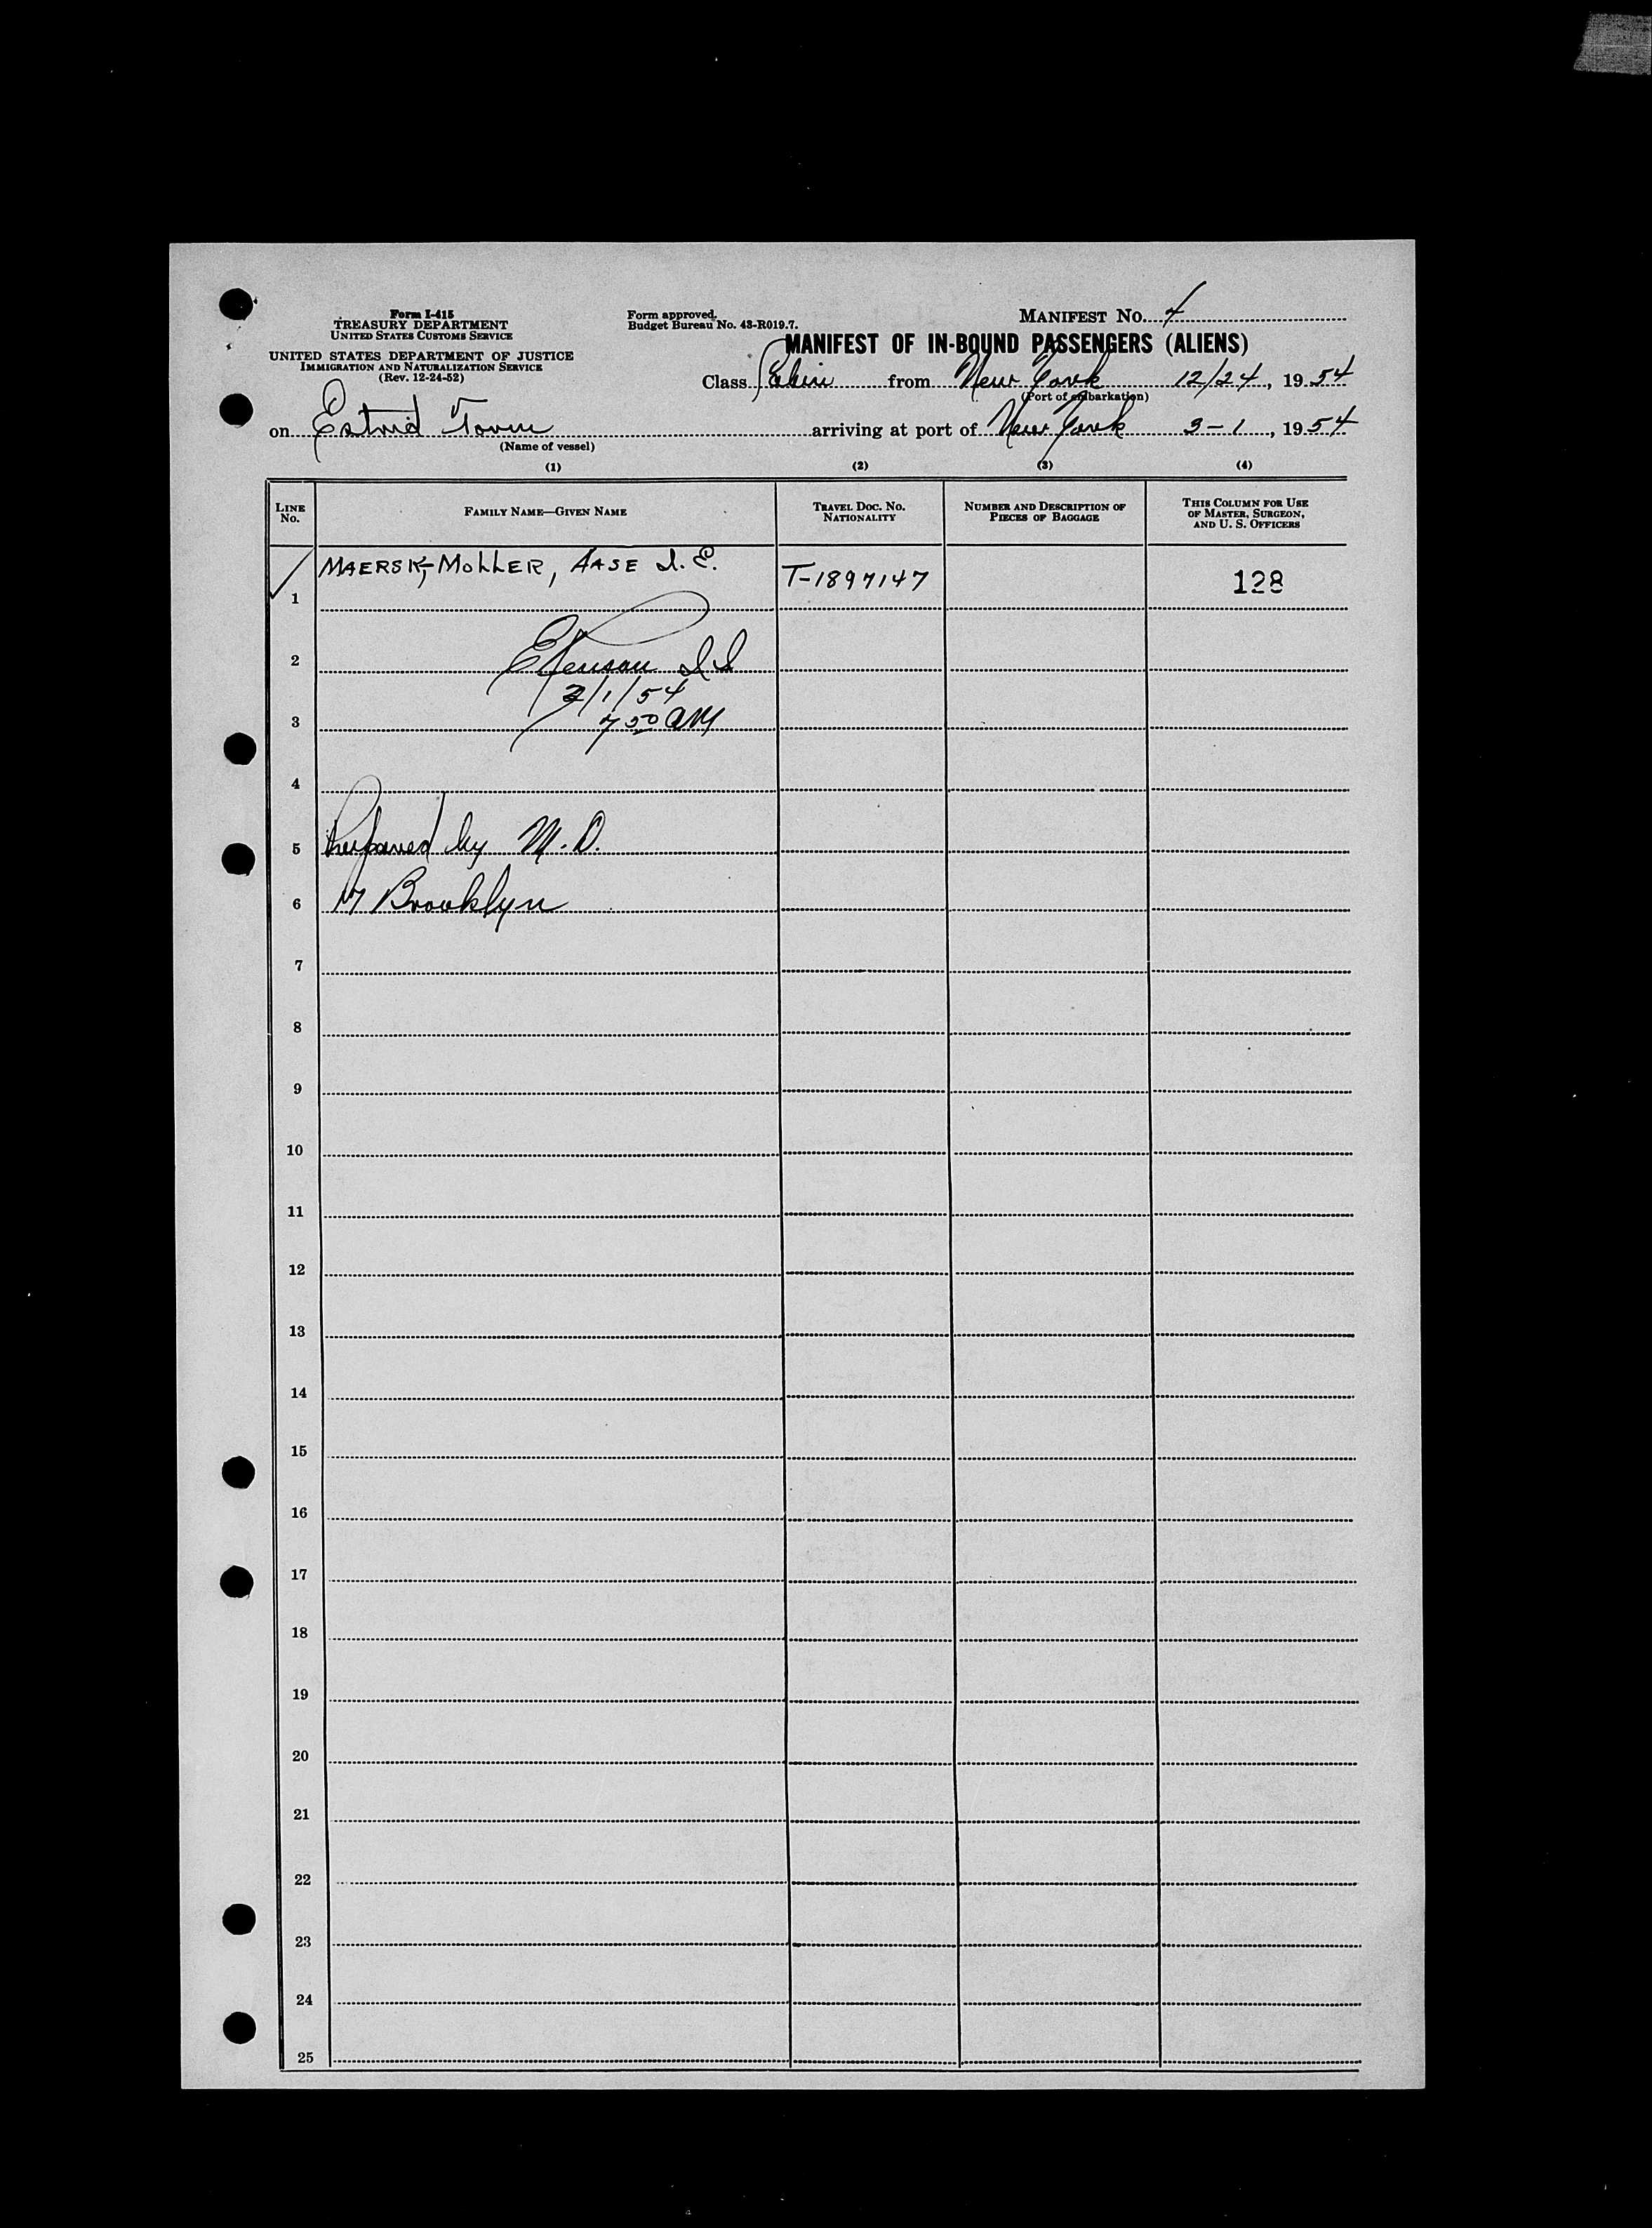 Form I-415
TREASURY DEPARTMENT
UNITED STATES CUSTOMS SERVICE
UNITED STATES DEPARTMENT OF JUSTICE
IMMIGRATION AND NATURALIZATION SERVICE
(Rev. 12-24-52)
Form approved.
Budget Bureau No. 43-R019.7.
MANIFEST No. 4
MANIFEST OF IN-BOUND PASSENGERS (ALIENS)
Class from New York 12/24, 1954
(Port of embarkation)
on Estrid Torm arriving at port of New York 3-1, 1954
(Name of vessel)
(1) (2) (3) (4)
LINE No. FAMILY NAME—GIVEN NAME TRAVEL DOC. No. NATIONALITY NUMBER AND DESCRIPTION OF PIECES OF BAGGAGE THIS COLUMN FOR USE OF MASTER, SURGEON, AND U. S. OFFICERS
1 MAERSK-MOLLER, AASE I. E. T-1897147 128
2
/1/54
3 7 50 AM
4
5 Prepared by M.D.
6 Brooklyn
7
8
9
10
11
12
13
14
15
16
17
18
19
20
21
22
23
24
25